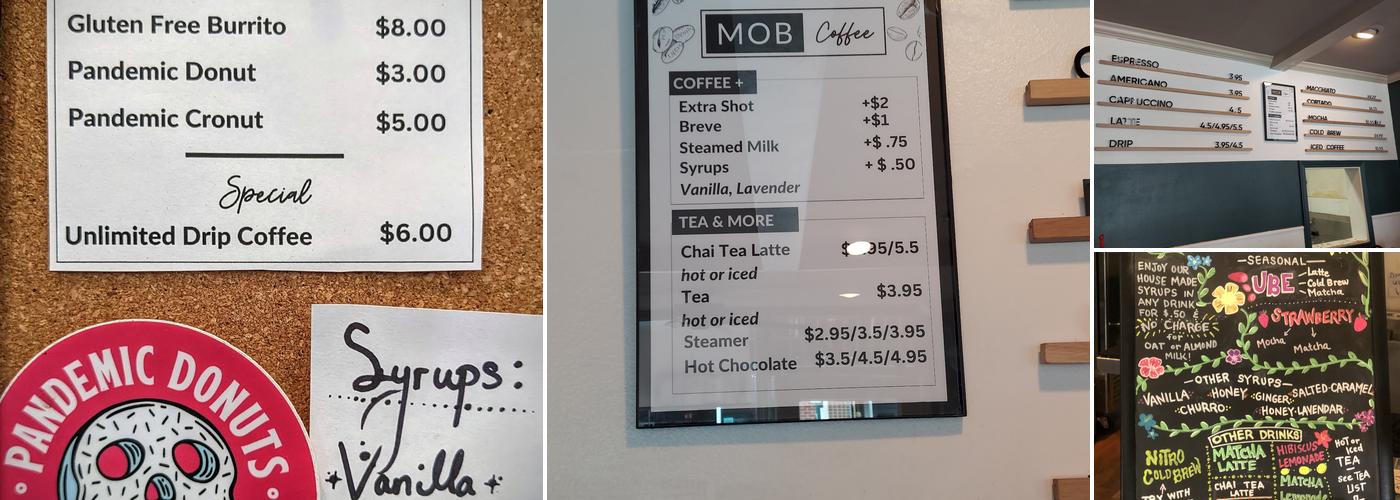 Gluten Free Burrito $8.00
Pandemic Donut $3.00
Pandemic Cronut $5.00
Special
Unlimited Drip Coffee $6.00
PANDEMIC DONUTS
Syrups:
Vanilla
MOB Coffee
COFFEE +
Extra Shot +$2
Breve +$1
Steamed Milk +$ .75
Syrups + $ .50
Vanilla, Lavender
TEA & MORE
Chai Tea Latte 95/5.5
hot or iced
Tea $3.95
hot or iced
Steamer $2.95/3.5/3.95
Hot Chocolate $3.5/4.5/4.95
ESPRESSO 3.95
AMERICANO 3.95
CAPPUCCINO 4.5
LATTE 4.5/4.95/5.5
DRIP 3.95/4.5
MOB
MACCHIATO
CORTADO
MOCHA
COLD BREW
ICED COFFEE
ENJOY OUR
HOUSE MADE
SYRUPS IN
ANY DRINK
FOR $.50 &
NO CHARGE
for
OAT or ALMOND
MILK!
SEASONAL
UBE
Latte
Cold Brew
Matcha
STRAWBERRY
Mocha Matcha
OTHER SYRUPS
VANILLA HONEY GINGER SALTED CARAMEL
CHURRO HONEY LAVENDAR
OTHER DRINKS
NITRO
COLD BREW
TRY WITH
MATCHA
LATTE
CHAI TEA
LATTE
HIBISCUS
LEMONADE
MATCHA
LEMONADE
HOT or
Iced
TEA
see TEA
LIST